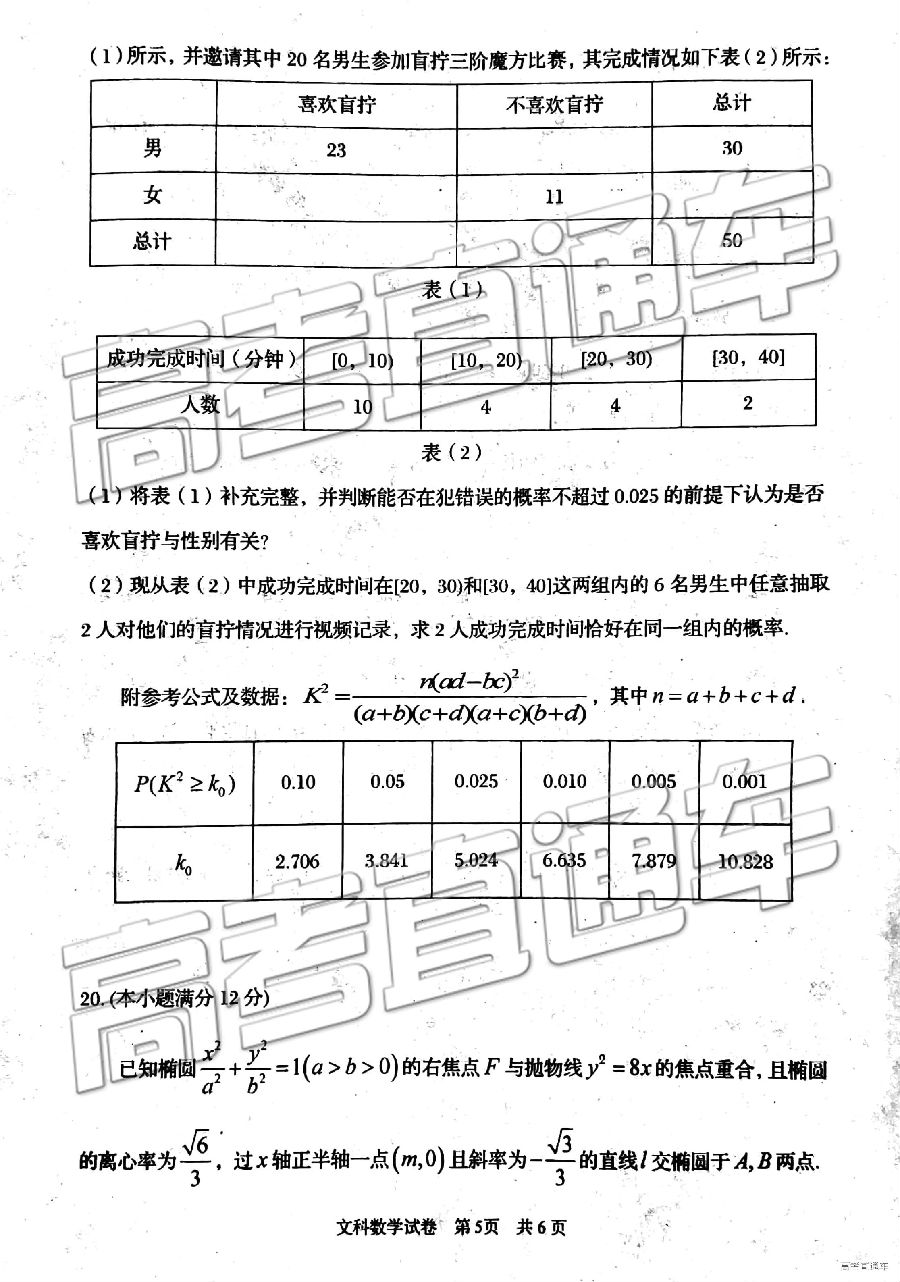 (1)所示,并邀请其中 20 名男生参加盲拧三阶魔方比赛,其完成情况如下表(2)所示:
喜欢盲拧 不喜欢盲拧 总计
男 23 30
女 11
总计 50
表(1)
成功完成时间(分钟) [0, 10) [10, 20) [20, 30) [30, 40]
人数 10 4 4 2
表(2)
(1)将表(1)补充完整,并判断能否在犯错误的概率不超过 0.025 的前提下认为是否
喜欢盲拧与性别有关?
(2)现从表(2)中成功完成时间在[20, 30)和[30, 40]这两组内的 6 名男生中任意抽取
2 人对他们的盲拧情况进行视频记录,求 2 人成功完成时间恰好在同一组内的概率.
附参考公式及数据: K² = n(ad−bc)² / (a+b)(c+d)(a+c)(b+d) ,其中 n = a + b + c + d .
P(K² ≥ k₀) 0.10 0.05 0.025 0.010 0.005 0.001
k₀ 2.706 3.841 5.024 6.635 7.879 10.828
20.(本小题满分 12 分)
已知椭圆 x²/a² + y²/b² = 1(a > b > 0) 的右焦点 F 与抛物线 y² = 8x 的焦点重合, 且椭圆
的离心率为 √6/3 , 过 x 轴正半轴一点 (m,0) 且斜率为 −√3/3 的直线 l 交椭圆于 A, B 两点.
文科数学试卷 第5页 共6页
高考直通车
高考直通车
高考直通车